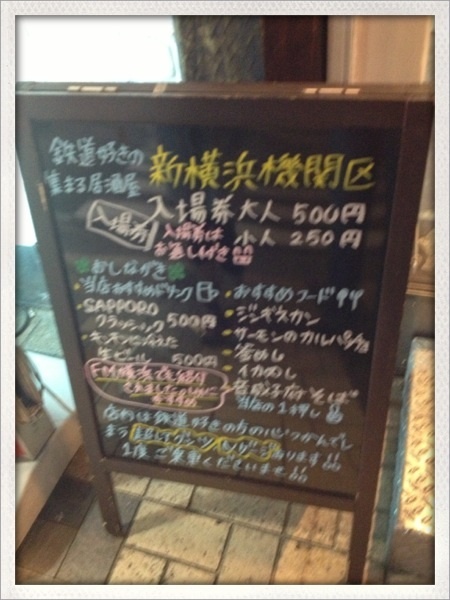 鉄道好きの
集まる居酒屋
新横浜機関区
入場券 大人 500円
小人 250円
入場券
入場券は
お通しつき
おしながき
・当店おすすめドリンク
・SAPPORO
クラシック 500円
・キンキンにひえた
生ビール 500円
FM横浜
・おすすめフード
・ジンギスカン
・サーモンのカルパッチョ
・釜めし
・イカめし
音威子府そば
当店の1押し
店内は鉄道好きの方の
あります!!
1度ご乗車くださいませ!!